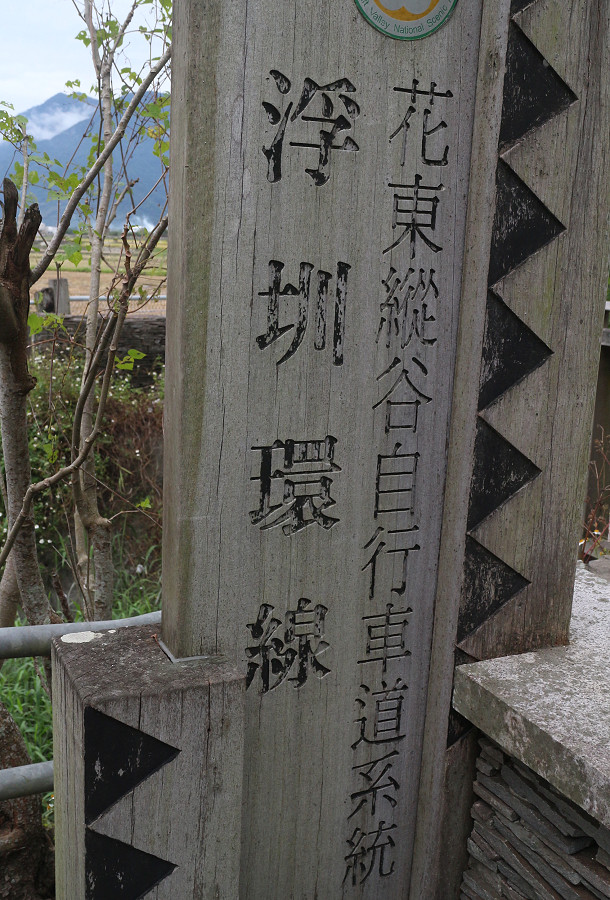 Valley National Scene
花東縱谷自行車道系統
浮圳環線